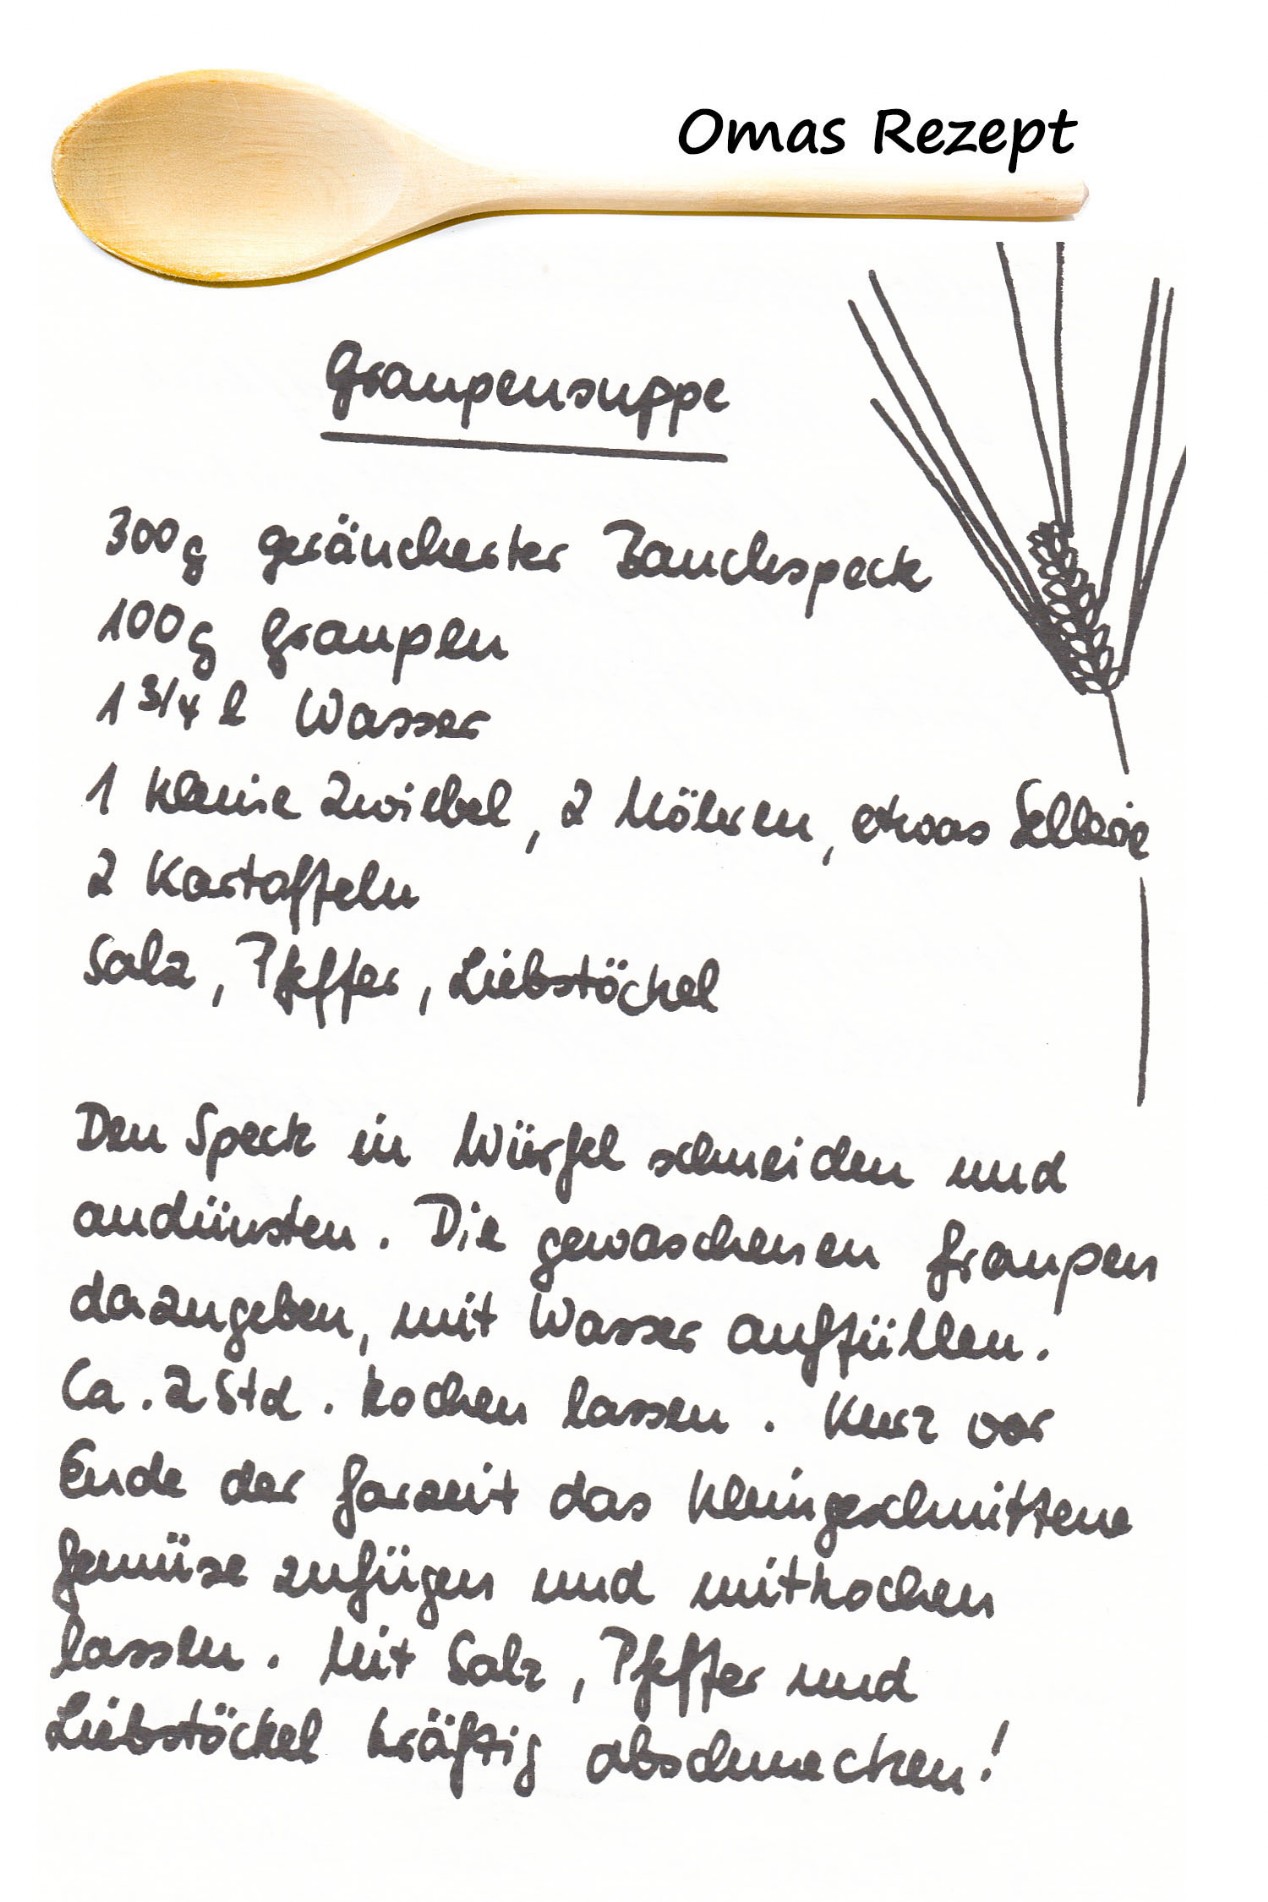 Omas Rezept
Graupensuppe
300g geräucherter Bauchspeck
100g Graupen
1 3/4 l Wasser
1 kleine Zwiebel, 2 Möhren, etwas Sellerie
2 Kartoffeln
Salz, Pfeffer, Liebstöckel
Den Speck in Würfel schneiden und
andünsten. Die gewaschenen Graupen
dazugeben, mit Wasser auffüllen.
Ca. 2 Std. kochen lassen. Kurz vor
Ende der Garzeit das kleingeschnittene
Gemüse zufügen und mitkochen
lassen. Mit Salz, Pfeffer und
Liebstöckel kräftig abschmecken!